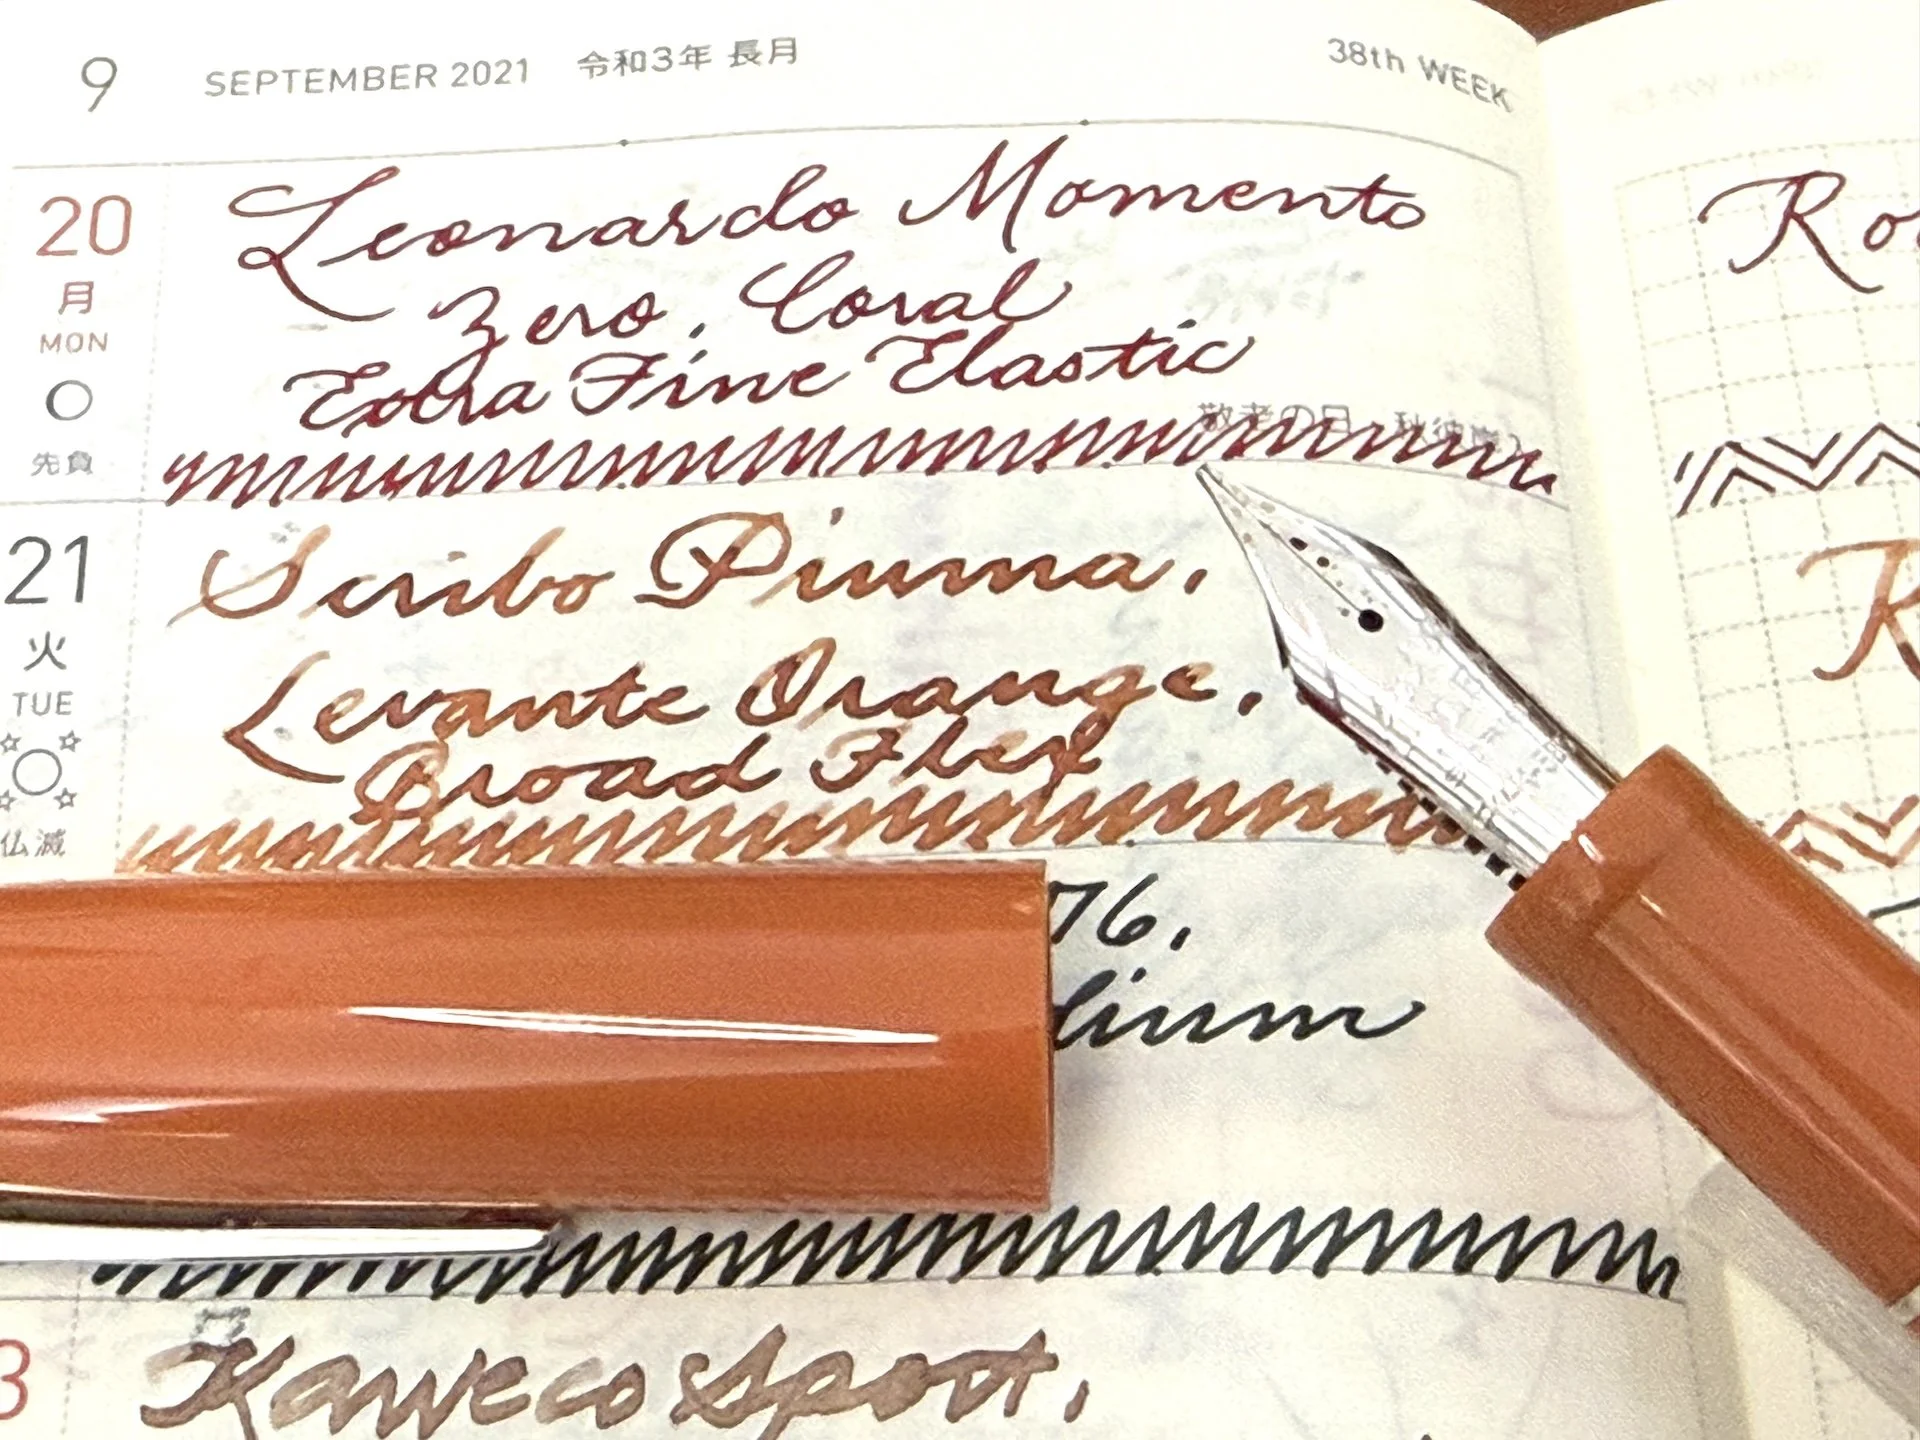 9 SEPTEMBER 2021 令和3年 長月 38th WEEK
20
月
MON
先負
Leonardo Momento
Zero, Coral
Extra Fine Elastic
敬老の日
21
火
TUE
仏滅
Scribo Piuma,
Levante Orange,
Broad Flex
76,
dium
3
Kaweco Sport,
Ro
R